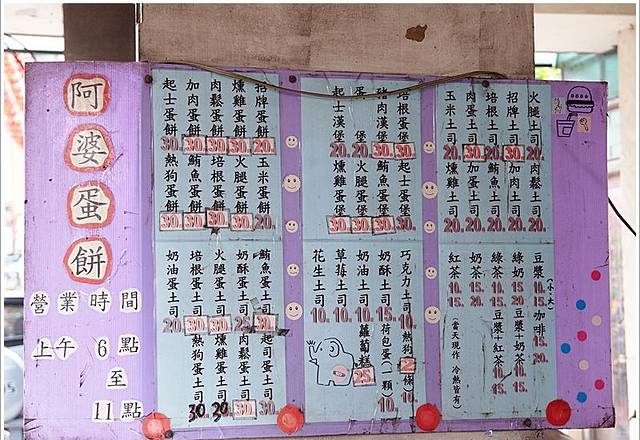 阿婆蛋餅
營業時間
上午 6 點
至
11 點
招牌蛋餅 20.
燻雞蛋餅 30.
肉鬆蛋餅 30.
加肉蛋餅 30.
起士蛋餅 30.
玉米蛋餅 20.
火腿蛋餅 30.
培根蛋餅 30.
鮪魚蛋餅 30.
熱狗蛋餅 30.
鮪魚蛋土司 30.
奶酥蛋土司 25
火腿蛋土司 30.
培根蛋土司 30.
奶油蛋土司 20.
起司蛋土司 30.
肉鬆蛋土司 30
燻雞蛋土司 30
熱狗蛋土司 30
培根蛋堡 30
豬肉漢堡 30
蛋堡 20
起士漢堡 20.
起士蛋堡 30.
鮪魚蛋堡 30.
火腿蛋堡 30.
燻雞蛋堡 30.
巧克力土司 10.
奶酥土司 15.
奶油土司 10.
草莓土司 10.
花生土司 10.
熱狗2條 10.
荷包蛋(一顆) 10.
蘿蔔糕 25
火腿土司 20.
招牌土司 30.
培根土司 20
肉蛋土司 30.
玉米土司 20.
肉鬆土司 20.
加肉土司 20.
鮪魚土司 20.
加蛋土司 20.
燻雞土司 20.
(小)(大)
豆漿 10. 15.
綠茶 10. 15.
綠奶 15 20
奶茶 10. 15.
紅茶 10. 15.
咖啡 15. 20.
豆漿+奶茶 15. 15.
豆漿+紅茶 10. 15.
(當天現作 冷熱皆有)